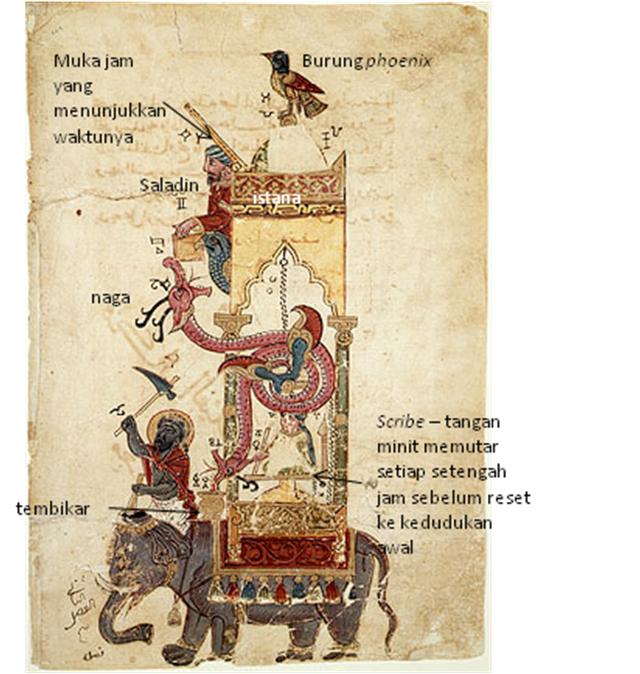 Muka jam
yang
menunjukkan
waktunya
Burung phoenix
Saladin
istana
naga
Scribe – tangan
minit memutar
setiap setengah
jam sebelum reset
ke kedudukan
awal
tembikar